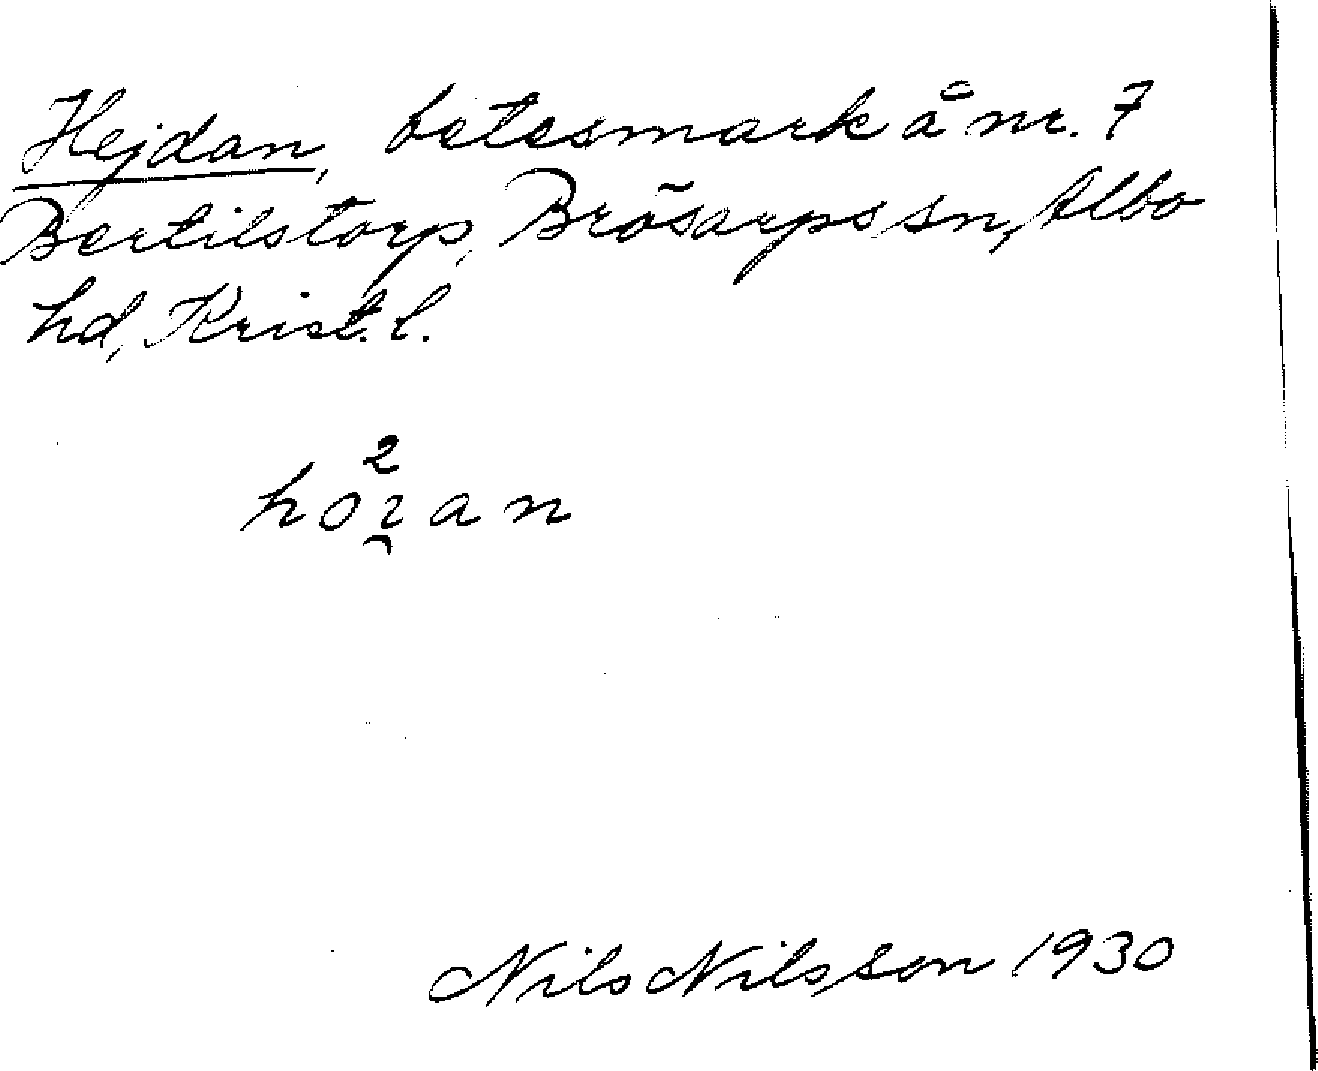 Hejdan, betesmark å nr. 7
Bertilstorp, Brösarps sn, Albo
hd, Krist. l.
Nils Nilsson 1930